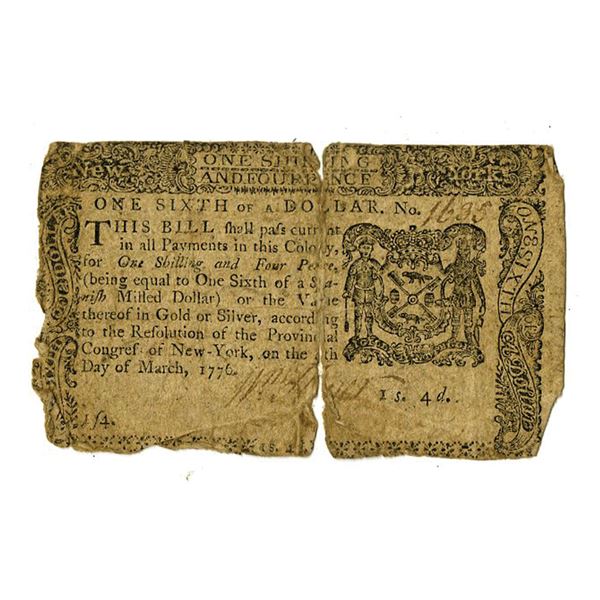 New- ONE SHILLING York
AND FOURPENCE
ONE SIXTH OF A DOLLAR. No. 1635
THIS BILL ſhall paſs current
in all Payments in this Colony,
for One Shilling and Four Pence,
(being equal to One Sixth of a Spa-
niſh Milled Dollar) or the Value
thereof in Gold or Silver, according
to the Reſolution of the Provincial
Congreſs of New-York, on the
Day of March, 1776.
1 s. 4 d.
1ſ4.
1s. 4
ONE SIXTH
of a Dollar